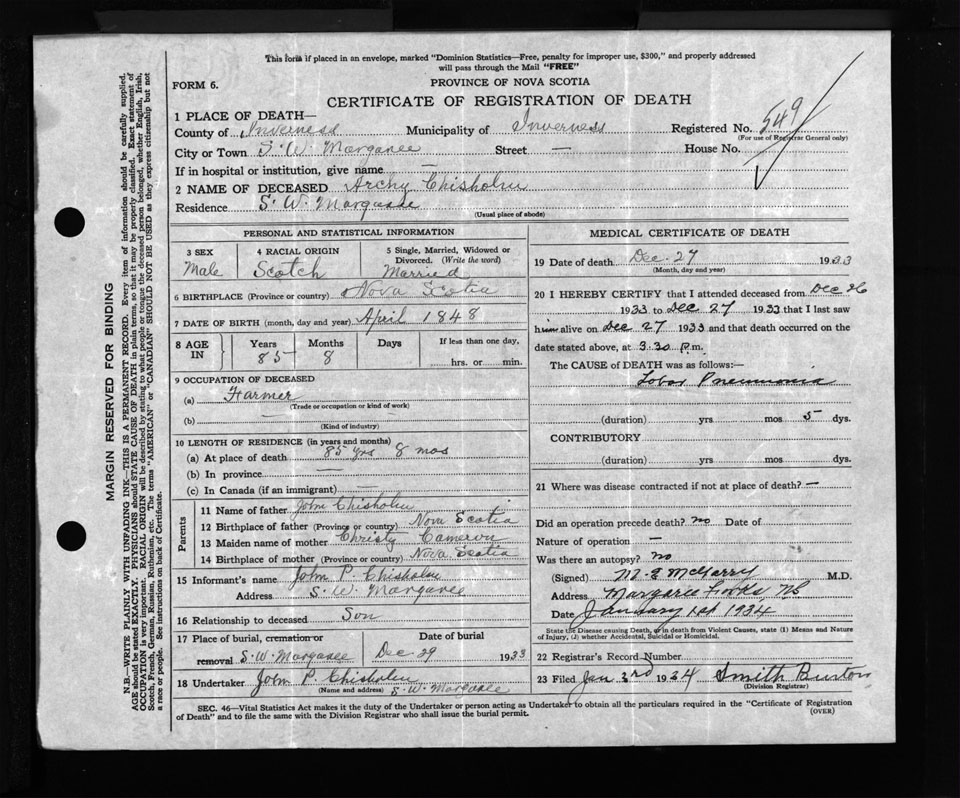 This form if placed in an envelope, marked "Dominion Statistics—Free, penalty for improper use, $300," and properly addressed
will pass through the Mail "FREE"
FORM 6. PROVINCE OF NOVA SCOTIA
CERTIFICATE OF REGISTRATION OF DEATH
1 PLACE OF DEATH—
County of Inverness Municipality of Inverness Registered No. 549
(For use of Registrar General only)
City or Town S. W. Margaree Street — House No.
If in hospital or institution, give name —
2 NAME OF DECEASED Archy Chisholm
Residence S. W. Margaree
(Usual place of abode)
PERSONAL AND STATISTICAL INFORMATION
3 SEX 4 RACIAL ORIGIN 5 Single, Married, Widowed or
Divorced. (Write the word)
Male Scotch Married
6 BIRTHPLACE (Province or country) Nova Scotia
7 DATE OF BIRTH (month, day and year) April 1848
8 AGE IN Years Months Days If less than one day,
85 8 hrs. or min.
9 OCCUPATION OF DECEASED
(a) Farmer
(Trade or occupation or kind of work)
(b) —
(Kind of industry)
10 LENGTH OF RESIDENCE (in years and months)
(a) At place of death 85 yrs 8 mos
(b) In province —
(c) In Canada (if an immigrant) —
Parents
11 Name of father John Chisholm
12 Birthplace of father (Province or country) Nova Scotia
13 Maiden name of mother Christy Cameron
14 Birthplace of mother (Province or country) Nova Scotia
15 Informant's name John P. Chisholm
Address S. W. Margaree
16 Relationship to deceased Son
17 Place of burial, cremation or Date of burial
removal S. W. Margaree Dec 29 1933
18 Undertaker John P. Chisholm
(Name and address) S. W. Margaree
MEDICAL CERTIFICATE OF DEATH
19 Date of death Dec. 27 1933
(Month, day and year)
20 I HEREBY CERTIFY that I attended deceased from Dec 26
1933 to Dec 27 1933 that I last saw
him alive on Dec 27 1933 and that death occurred on
date stated above, at 3.30 P.m.
The CAUSE of DEATH was as follows:—
Lobar Pneumonia
(duration) yrs mos 5 dys.
CONTRIBUTORY
(duration) yrs mos dys.
21 Where was disease contracted if not at place of death? —
Did an operation precede death? no Date of
Nature of operation —
Was there an autopsy? no
(Signed) M. E McGarry M.D.
Address Margaree Forks NS
Date January 1st 1934
State the Disease causing Death, or in death from Violent Causes, state (1) Means and Nature
of Injury, (2) whether Accidental, Suicidal or Homicidal.
22 Registrar's Record Number
23 Filed Jan 3rd 1934 Smith Burton
(Division Registrar)
SEC. 46—Vital Statistics Act makes it the duty of the Undertaker or person acting as Undertaker to obtain all the particulars required in the "Certificate of Registration
of Death" and to file the same with the Division Registrar who shall issue the burial permit. (OVER)
MARGIN RESERVED FOR BINDING
N.B.—WRITE PLAINLY WITH UNFADING INK—THIS IS A PERMANENT RECORD. Every item of information should be carefully supplied.
AGE should be stated EXACTLY. PHYSICIANS should STATE CAUSE OF DEATH in plain terms, so that it may be properly classified. Exact statement of
OCCUPATION is very important. RACIAL ORIGIN will be described by stating to what people or tongue the deceased person belonged, whether English, Irish,
Scotch, French, German, Russian, Ruthenian, etc. The terms "AMERICAN" or "CANADIAN" SHOULD NOT BE USED as they express citizenship but not
a race or people. See instructions on back of Certificate.